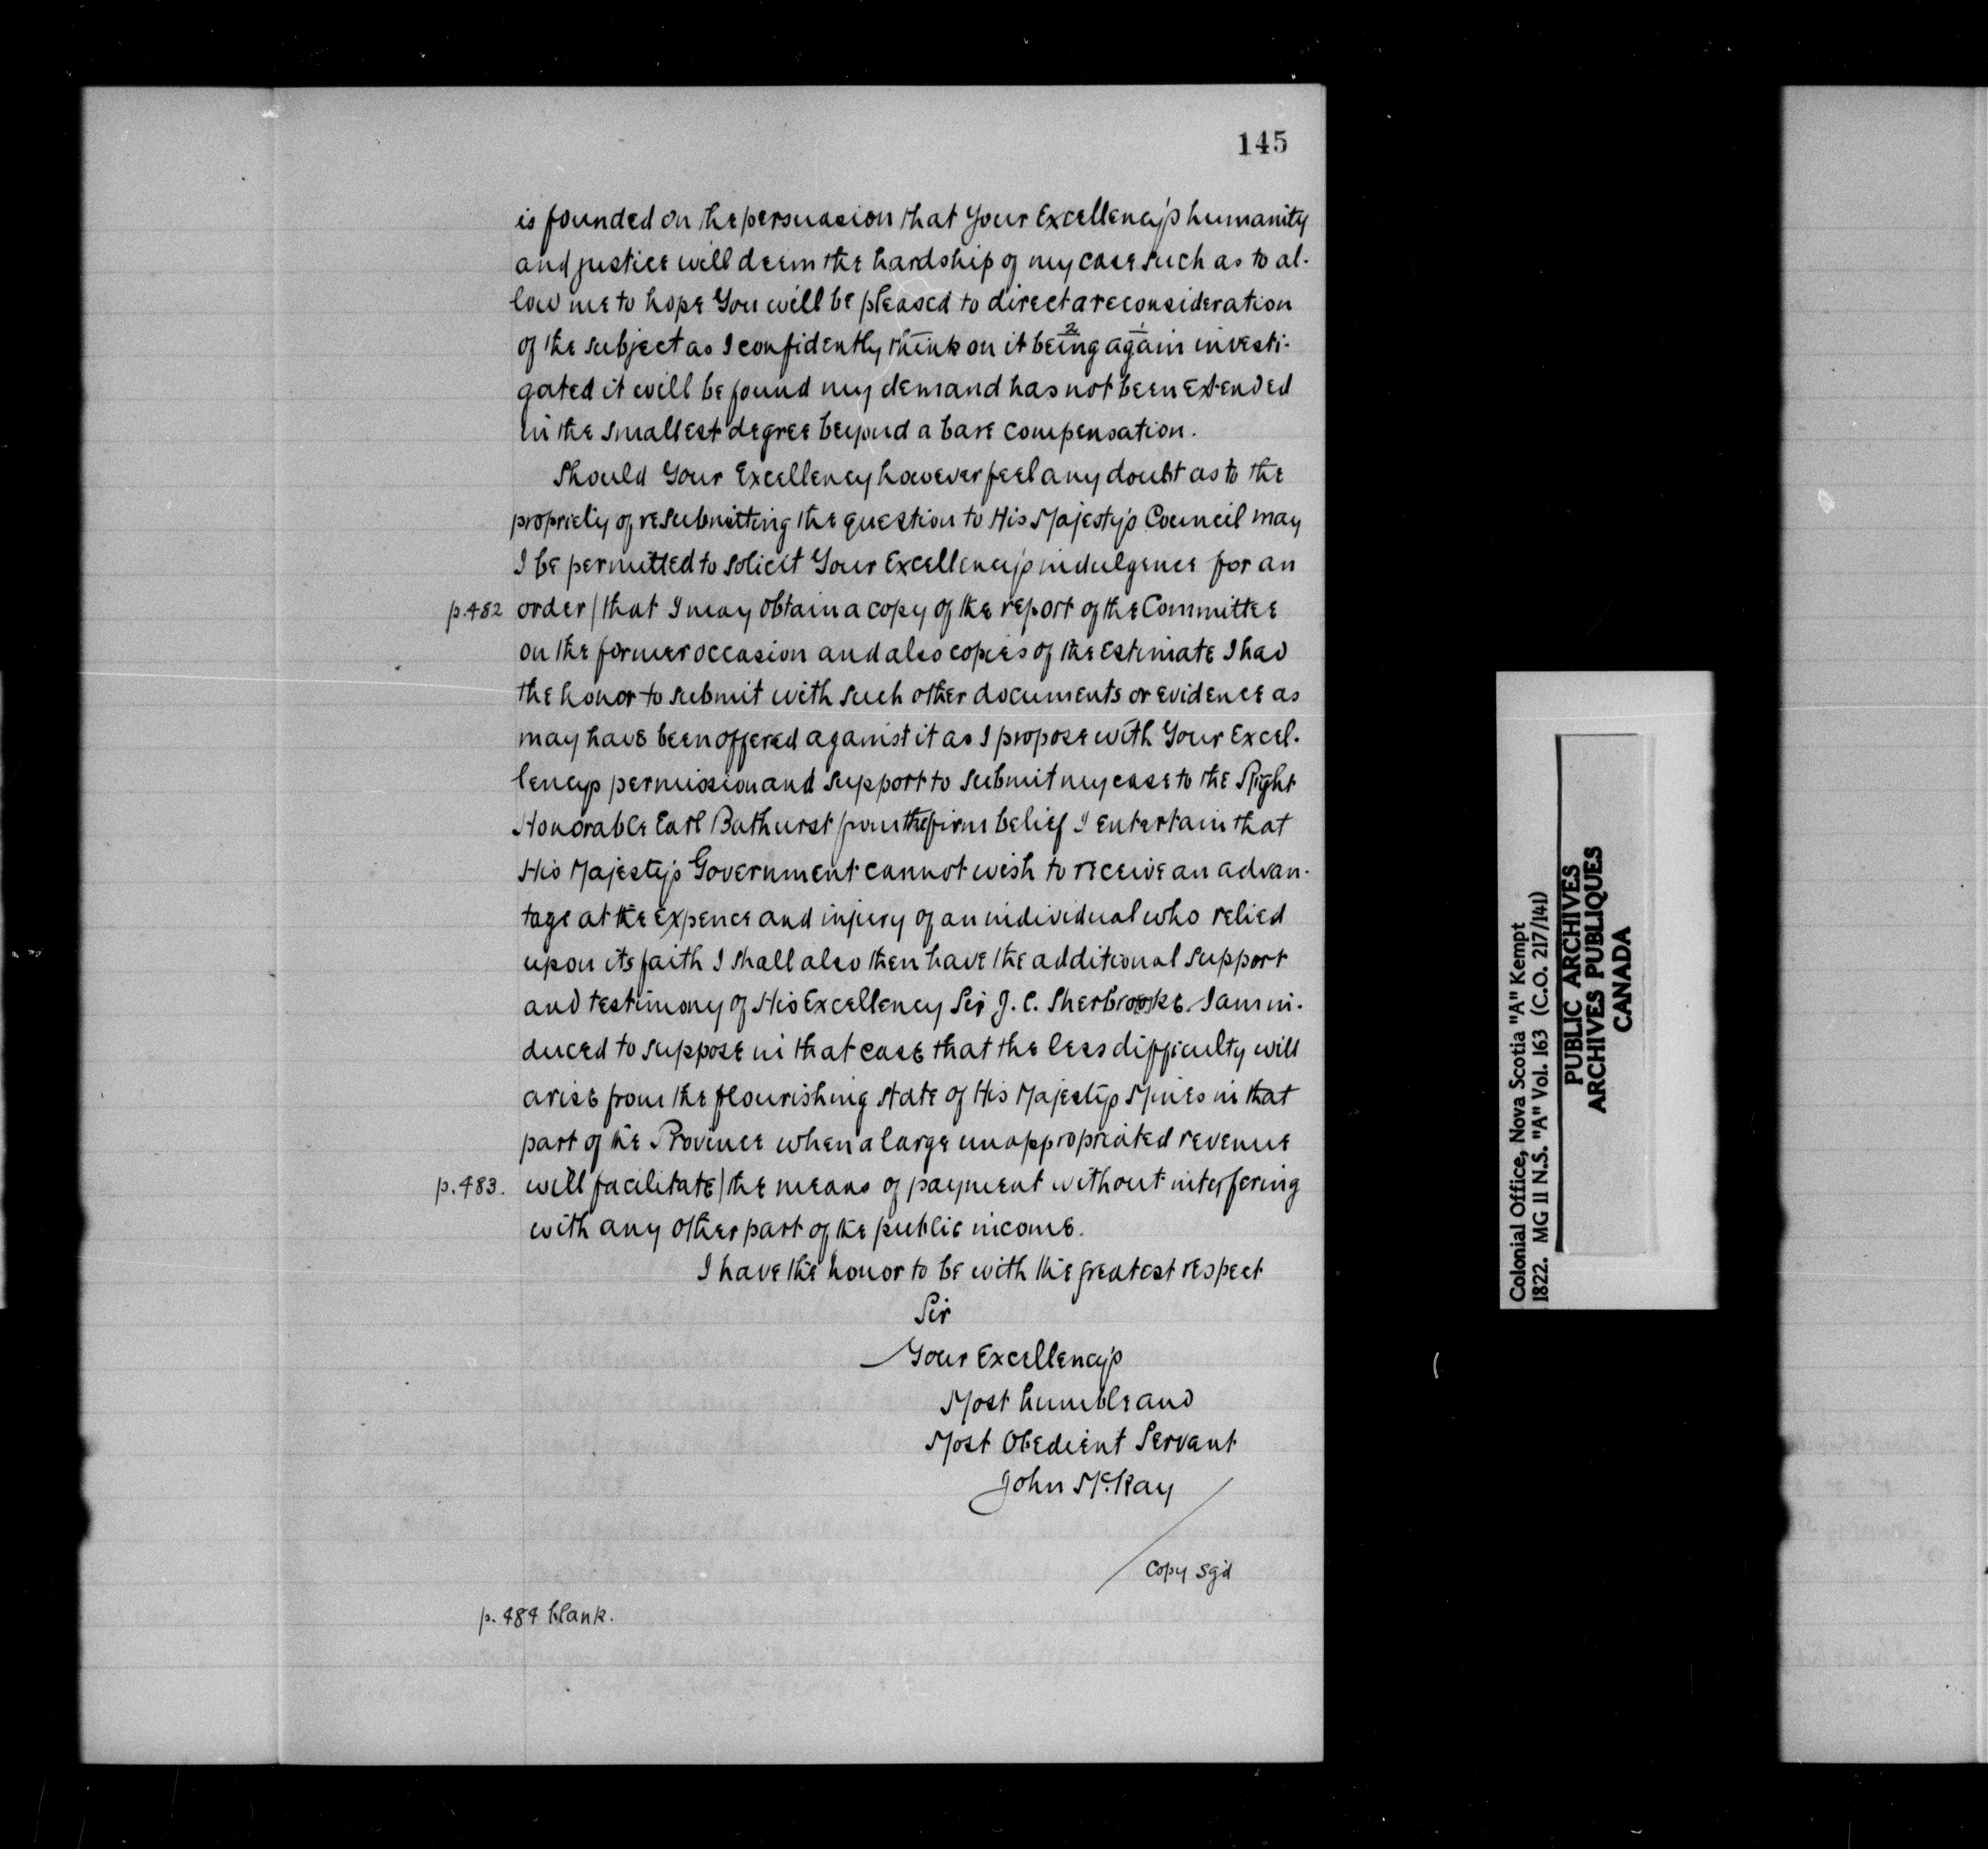 145
is founded on the persuasion that Your Excellency's humanity
and justice will deem the hardship of my case such as to al-
low me to hope You will be pleased to direct a reconsideration
of the subject as I confidently think on it being again investi-
2 1
gated it will be found my demand has not been extended
in the smallest degree beyond a bare compensation.
Should Your Excellency however feel any doubt as to the
propriety of resubmitting the question to His Majesty's Council may
I be permitted to solicit Your Excellency's indulgence for an
p.482 order / that I may obtain a copy of the report of the Committee
on the former occasion and also copies of the estimate I had
the honor to submit with such other documents or evidence as
may have been offered against it as I propose with Your Excel-
lency's permission and support to submit my case to the Right
Honorable Earl Bathurst from the firm belief I entertain that
His Majesty's Government cannot wish to receive an advan-
tage at the expence and injury of an individual who relied
upon its faith I shall also then have the additional support
and testimony of His Excellency Sir J. C. Sherbrooke. I am in-
duced to suppose in that case that the less difficulty will
arise from the flourishing state of His Majesty's Mines in that
part of the Province when a large unappropriated revenue
p.483. will facilitate / the means of payment without interfering
with any other part of the public income.
I have the honor to be with the greatest respect
Sir
Your Excellency's
Most humble and
Most Obedient Servant
John McKay
Copy sg'd
p. 484 blank.
Colonial Office, Nova Scotia "A" Kempt
1822. MG 11 N.S. "A" Vol. 163 (C.O. 217/141)
PUBLIC ARCHIVES
ARCHIVES PUBLIQUES
CANADA